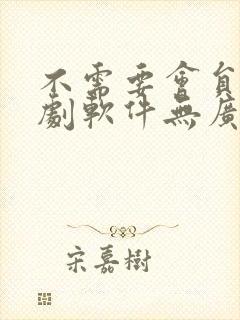 不需要會員
劇軟件無廣
宋嘉樹